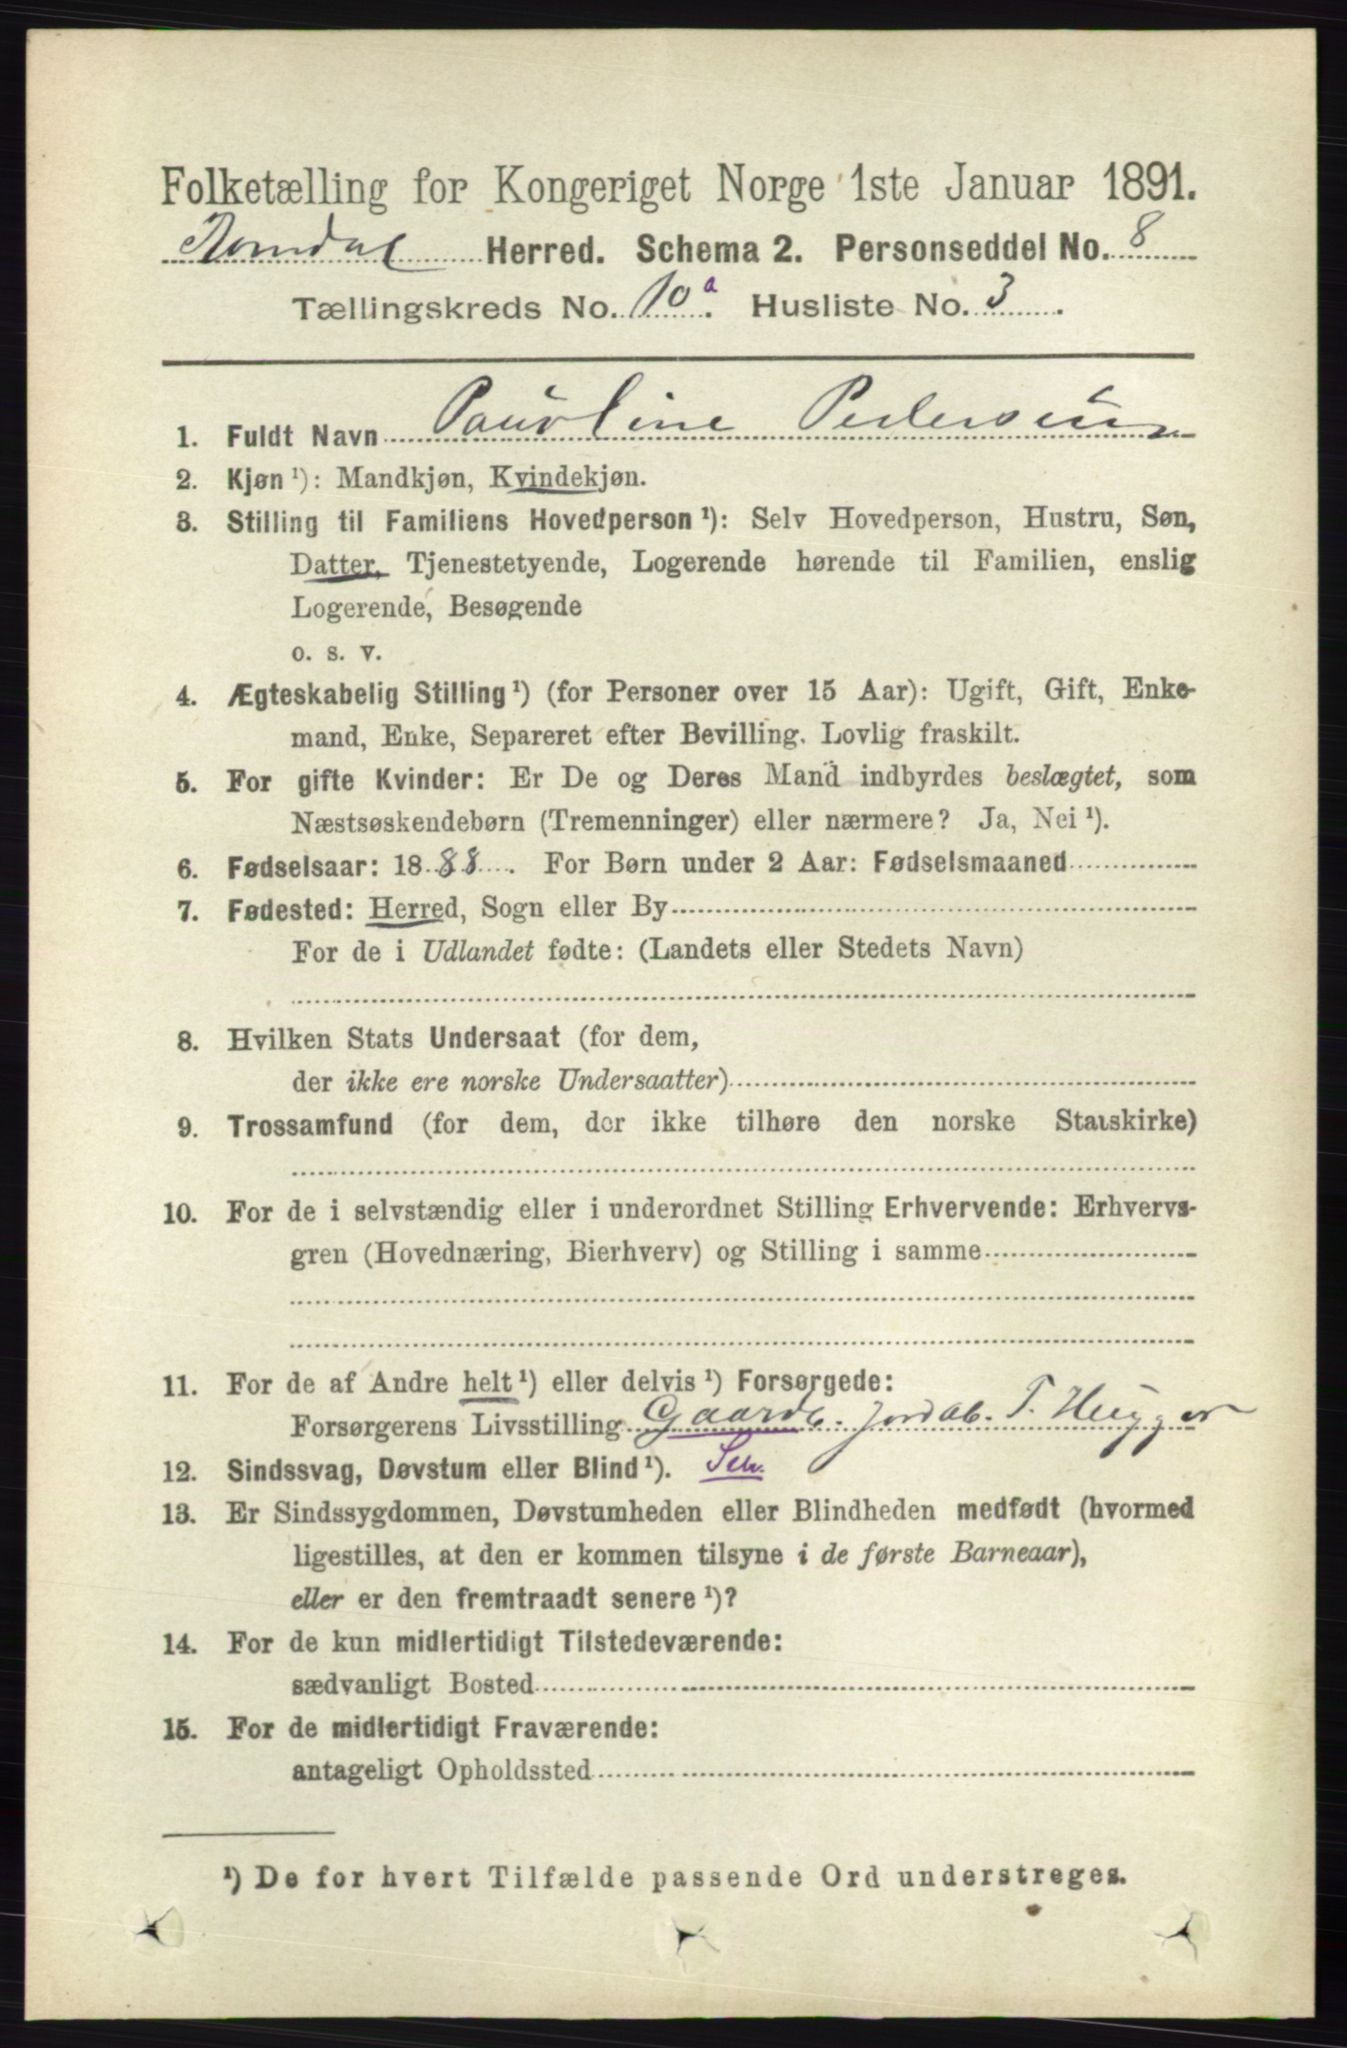 Folketælling for Kongeriget Norge 1ste Januar 1891.
Romdal Herred. Schema 2. Personseddel No. 8
Tællingskreds No. 10a. Husliste No. 3.
1. Fuldt Navn Pauline Pedersen
2. Kjøn ¹): Mandkjøn, Kvindekjøn.
3. Stilling til Familiens Hovedperson ¹): Selv Hovedperson, Hustru, Søn,
Datter, Tjenestetyende, Logerende hørende til Familien, enslig
Logerende, Besøgende
o. s. v.
4. Ægteskabelig Stilling ¹) (for Personer over 15 Aar): Ugift, Gift, Enke-
mand, Enke, Separeret efter Bevilling. Lovlig fraskilt.
5. For gifte Kvinder: Er De og Deres Mand indbyrdes beslægtet, som
Næstsøskendebørn (Tremenninger) eller nærmere? Ja, Nei ¹).
6. Fødselsaar: 1888. For Børn under 2 Aar: Fødselsmaaned
7. Fødested: Herred, Sogn eller By
For de i Udlandet fødte: (Landets eller Stedets Navn)
8. Hvilken Stats Undersaat (for dem,
der ikke ere norske Undersaatter)
9. Trossamfund (for dem, der ikke tilhøre den norske Statskirke)
10. For de i selvstændig eller i underordnet Stilling Erhvervende: Erhvervs-
gren (Hovednæring, Bierhverv) og Stilling i samme
11. For de af Andre helt ¹) eller delvis ¹) Forsørgede:
Forsørgerens Livsstilling Gaardb. Jordab. T. Hugger
12. Sindssvag, Døvstum eller Blind ¹).
13. Er Sindssygdommen, Døvstumheden eller Blindheden medfødt (hvormed
ligestilles, at den er kommen tilsyne i de første Barneaar),
eller er den fremtraadt senere ¹)?
14. For de kun midlertidigt Tilstedeværende:
sædvanligt Bosted
15. For de midlertidigt Fraværende:
antageligt Opholdssted
¹) De for hvert Tilfælde passende Ord understreges.